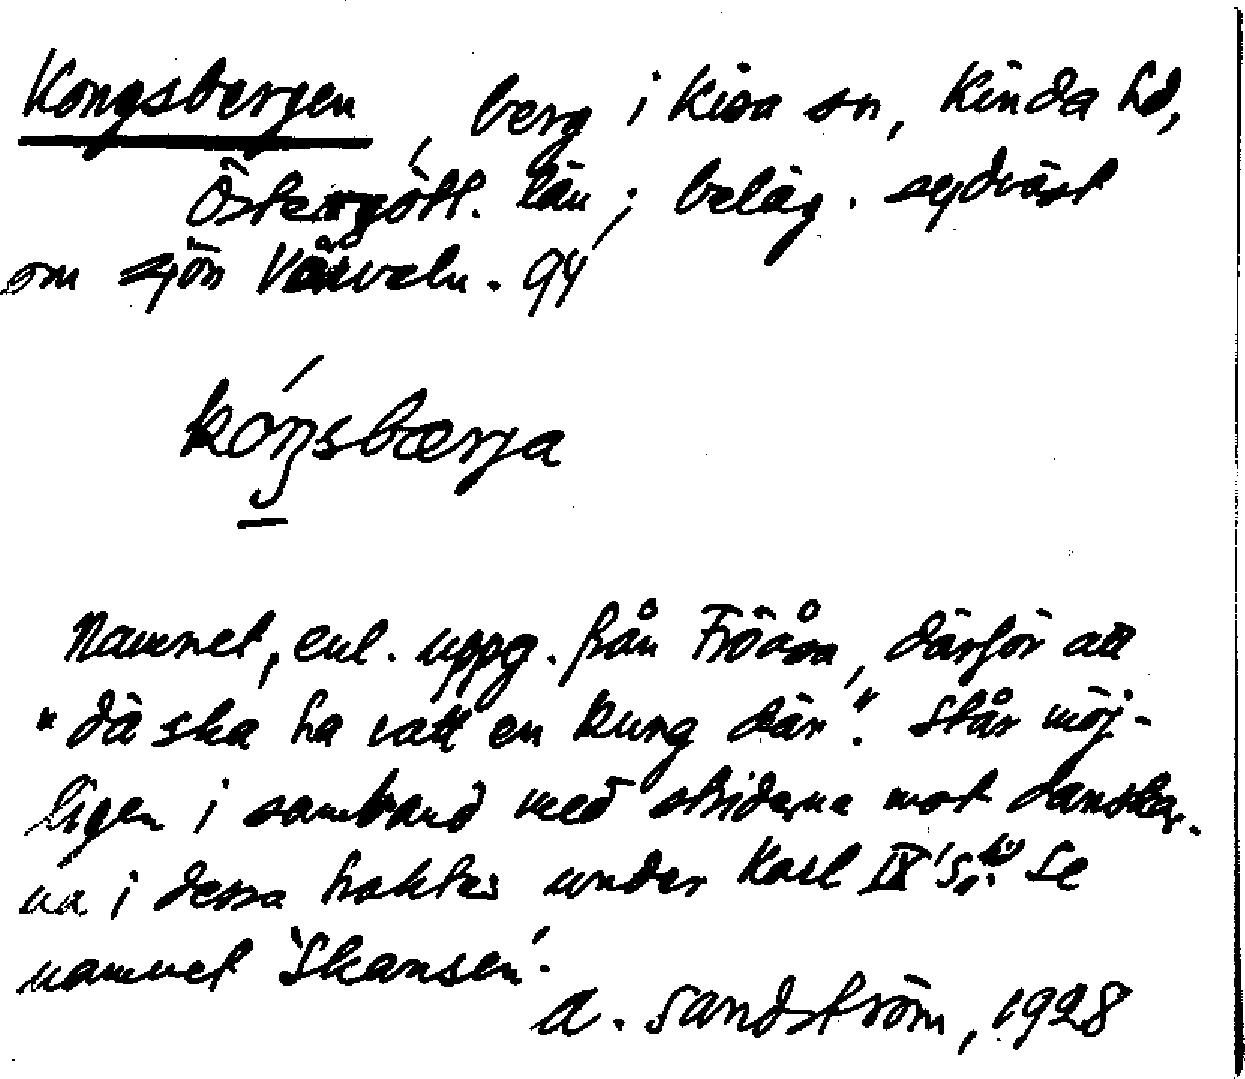 Kongsbergen, berg i Kisa sn, Kinda hd,
Östergötl. län; beläg. sydväst
om sjön Vårveln. 94
kóŋsbærja
Namnet, enl. uppg. från Fröåsa, därför att
"dä ska ha vatt en kung där". Står möj-
ligen i samband med striderna mot danskar-
na i dessa trakter under Karl IX's Se
namnet 'Skansen'.
A. Sandström, 1928